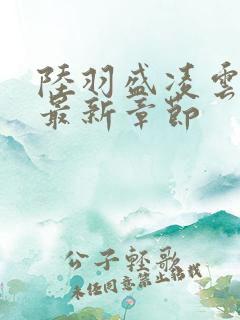 陸羽盛凌雲
最新章節
公子輕歌
未经同意禁止转载